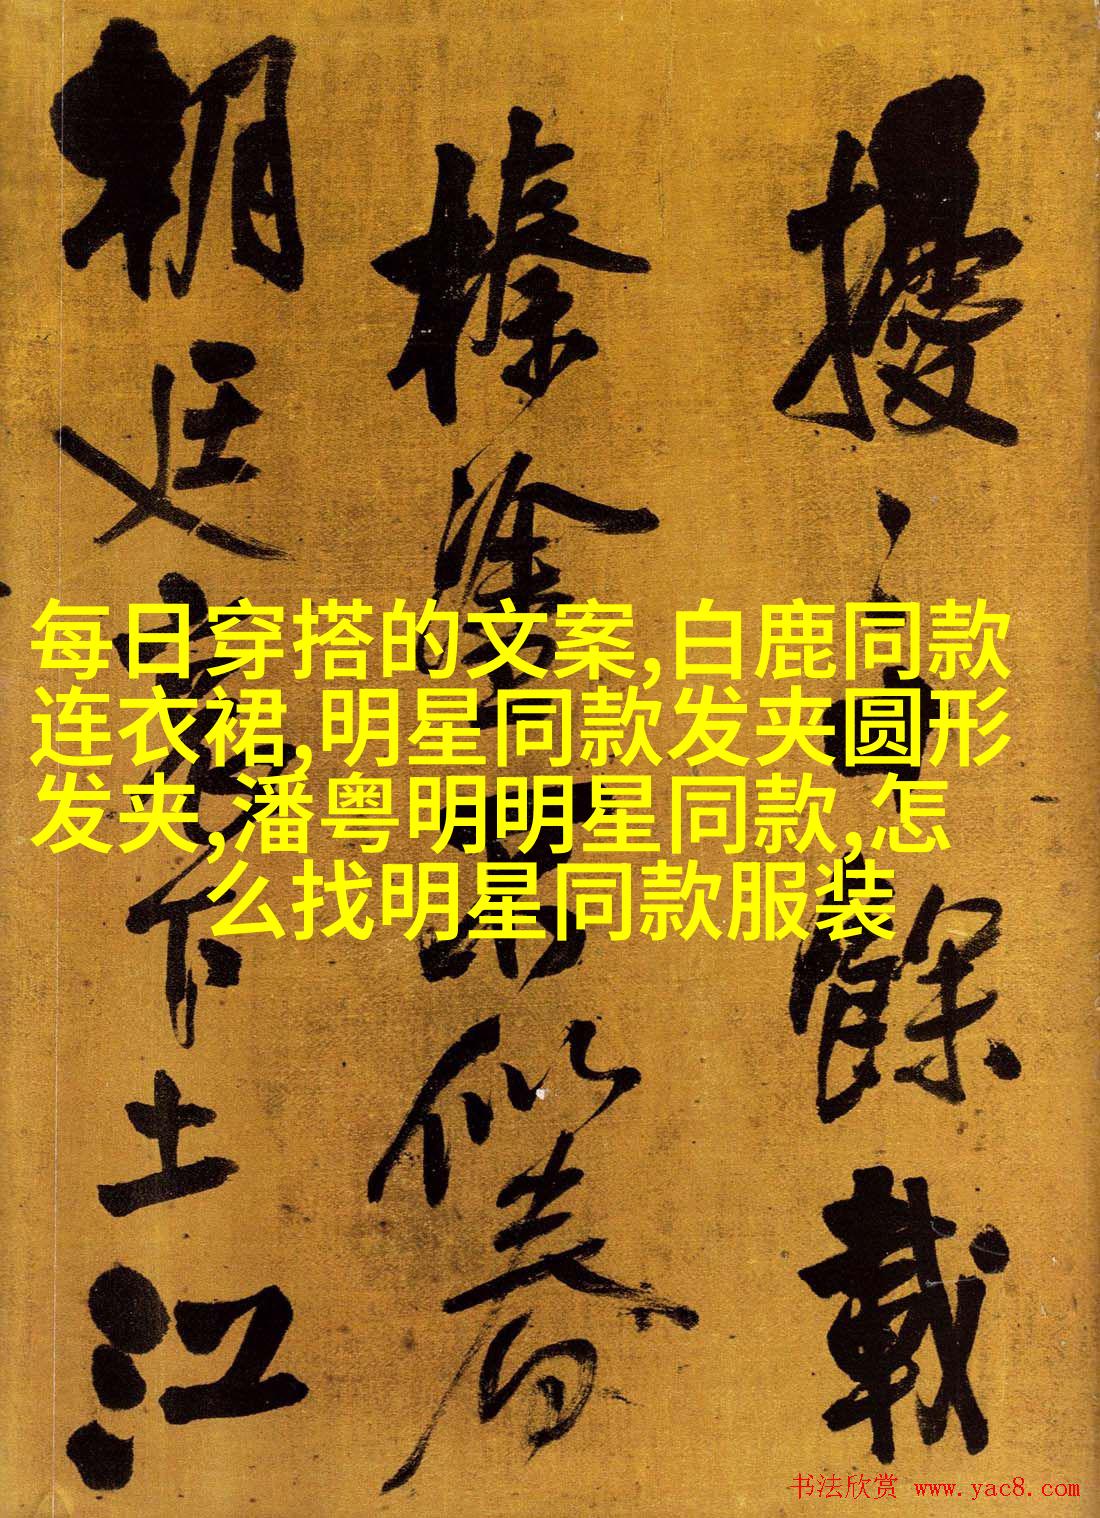 每日穿搭的文案,白鹿同款
连衣裙,明星同款发夹圆形
发夹,潘粤明明星同款,怎
么找明星同款服装
擾之餘載
榛塗
朝廷下土江
书法欣赏 www.yac8.com